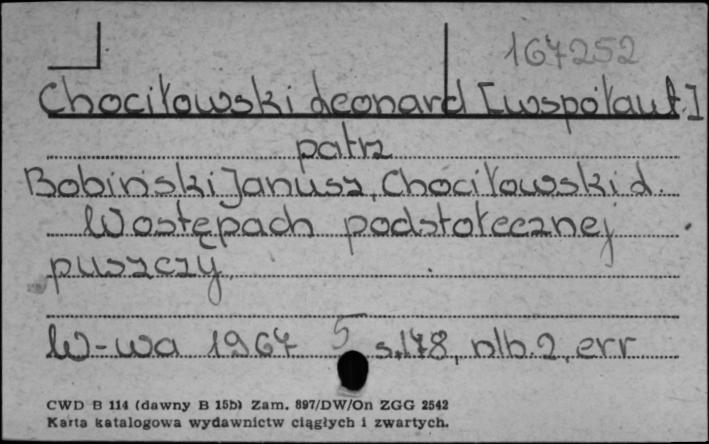 167252
Chociłowski Leonard [współaut.]
patrz
Bobiński Janusz, Chociłowski L.
W ostępach podstołecznej
puszczy.
W-wa 1967 5 s. 178, nlb. 2, err
CWD B 114 (dawny B 15b) Zam. 897/DW/On ZGG 2542
Karta katalogowa wydawnictw ciągłych i zwartych.